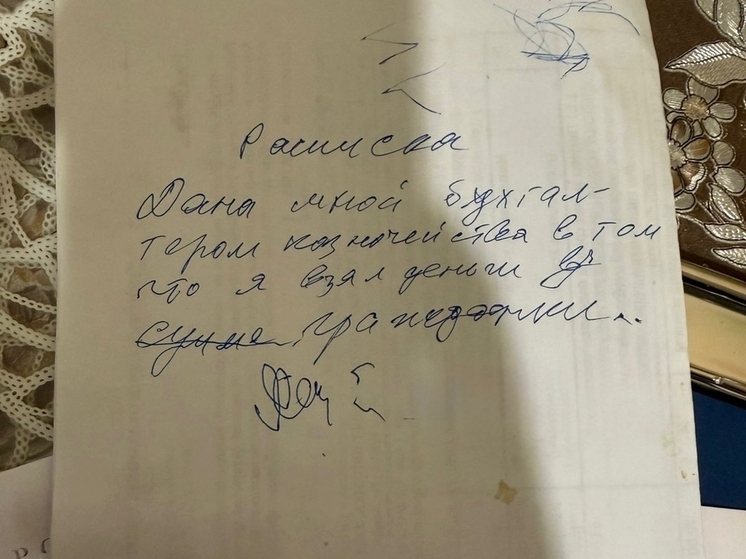 Расписка
Дана мной бухгал-
тером казначейства в том
что я взял деньги у
сумма гражданки...